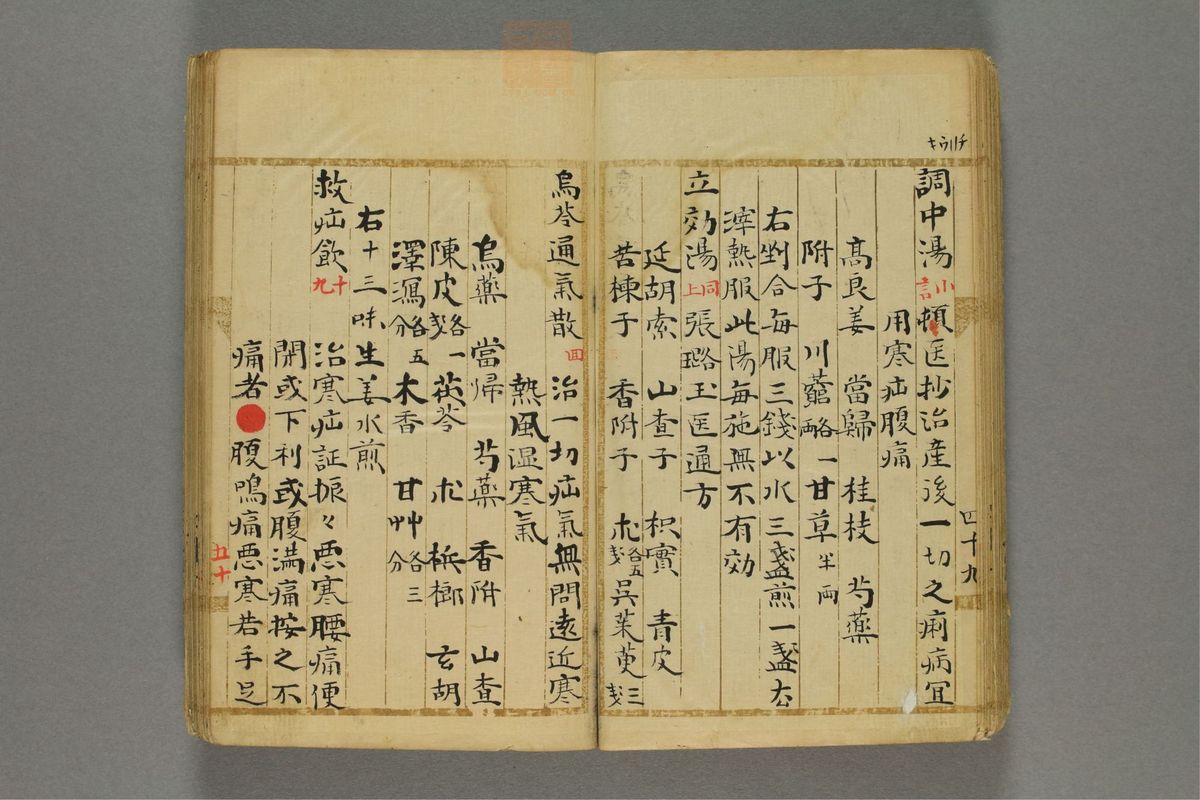 調中湯 頓医抄治産後一切之痢病冝
用寒疝腹痛
高良姜 當歸 桂枝 芍藥
附子 川藭各一両 甘草半両
右剉合每服三錢以水三盞煎一盞去
滓熱服此湯每施無不有効
立効湯 同上 張璐玉医通方
延胡索 山査子 枳實 青皮
苦楝子 香附子 朮各五 呉茱萸三
四十九
烏苓通氣散 回 治一切疝氣無問遠近寒
熱風湿寒氣
烏藥 當帰 芍藥 香附 山査
陳皮各一 茯苓 朮 梹榔 玄胡
澤瀉各五分 木香 甘艸各三分
右十三味生姜水煎
救疝飲 十九 治寒疝証振々悪寒腰痛便
閉或下利或腹満痛按之不
痛者 腹鳴痛悪寒若手足
五十